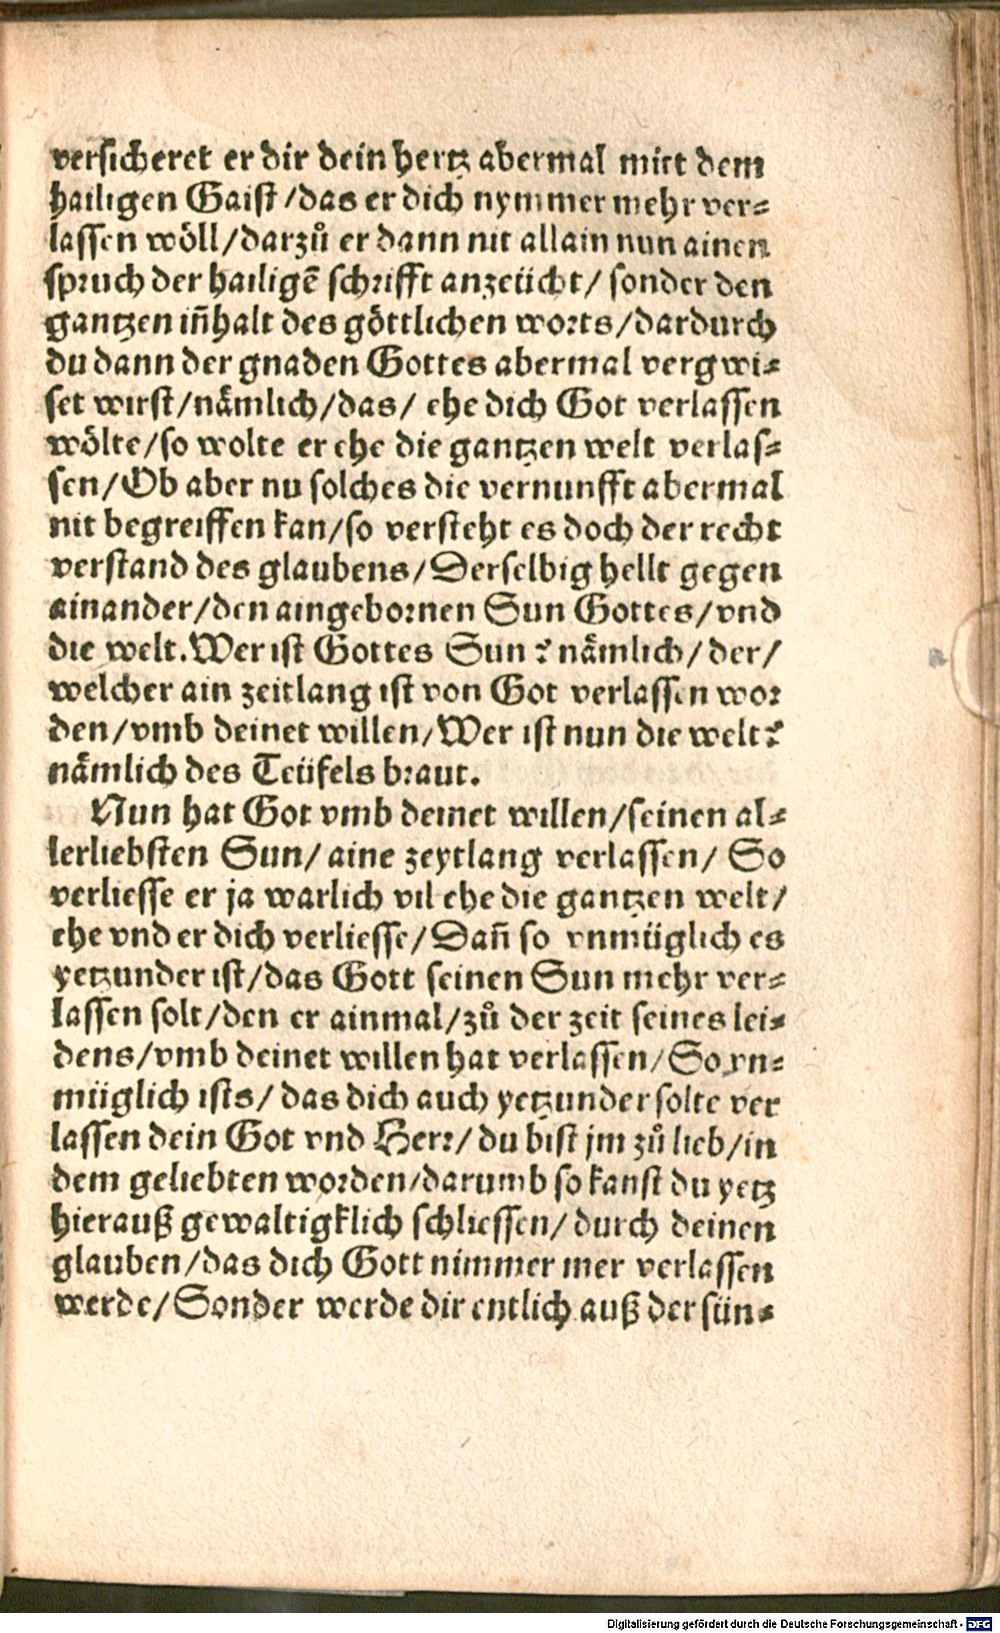 versicheret er dir dein hertz abermal mitt dem
hailigen Gaist /das er dich nymmer mehr ver=
lassen wöll/darzů er dann nit allain nun ainen
spruch der hailigẽ schrifft anzeücht/ sonder den
gantzen iñhalt des göttlichen worts/dardurch
du dann der gnaden Gottes abermal vergwi=
set wirst/nämlich/das/ ehe dich Got verlassen
wölte/so wolte er ehe die gantzen welt verlas=
sen/Ob aber nu solches die vernunfft abermal
nit begreiffen kan/so versteht es doch der recht
verstand des glaubens/Derselbig hellt gegen
ainander/den aingebornen Sun Gottes/vnd
die welt.Wer ist Gottes Sun? nämlich/ der/
welcher ain zeitlang ist von Got verlassen wor
den/vmb deinet willen/Wer ist nun die welt?
nämlich des Teüfels braut.
Nun hat Got vmb deinet willen/seinen al=
lerliebsten Sun/ aine zeytlang verlassen/ So
verliesse er ja warlich vil ehe die gantzen welt/
ehe vnd er dich verliesse/Dañ so vnmüglich es
yetzunder ist/das Gott seinen Sun mehr ver=
lassen solt/den er ainmal/zů der zeit seines lei=
dens/vmb deinet willen hat verlassen/So vn=
müglich ists/ das dich auch yetzunder solte ver
lassen dein Got vnd Herr/ du bist jm zů lieb/in
dem geliebten worden/darumb so kanst du yetz
hierauß gewaltigklich schliessen/ durch deinen
glauben/das dich Gott nimmer mer verlassen
werde/Sonder werde dir entlich auß der sün=
Digitalisierung gefördert durch die Deutsche Forschungsgemeinschaft - DFG